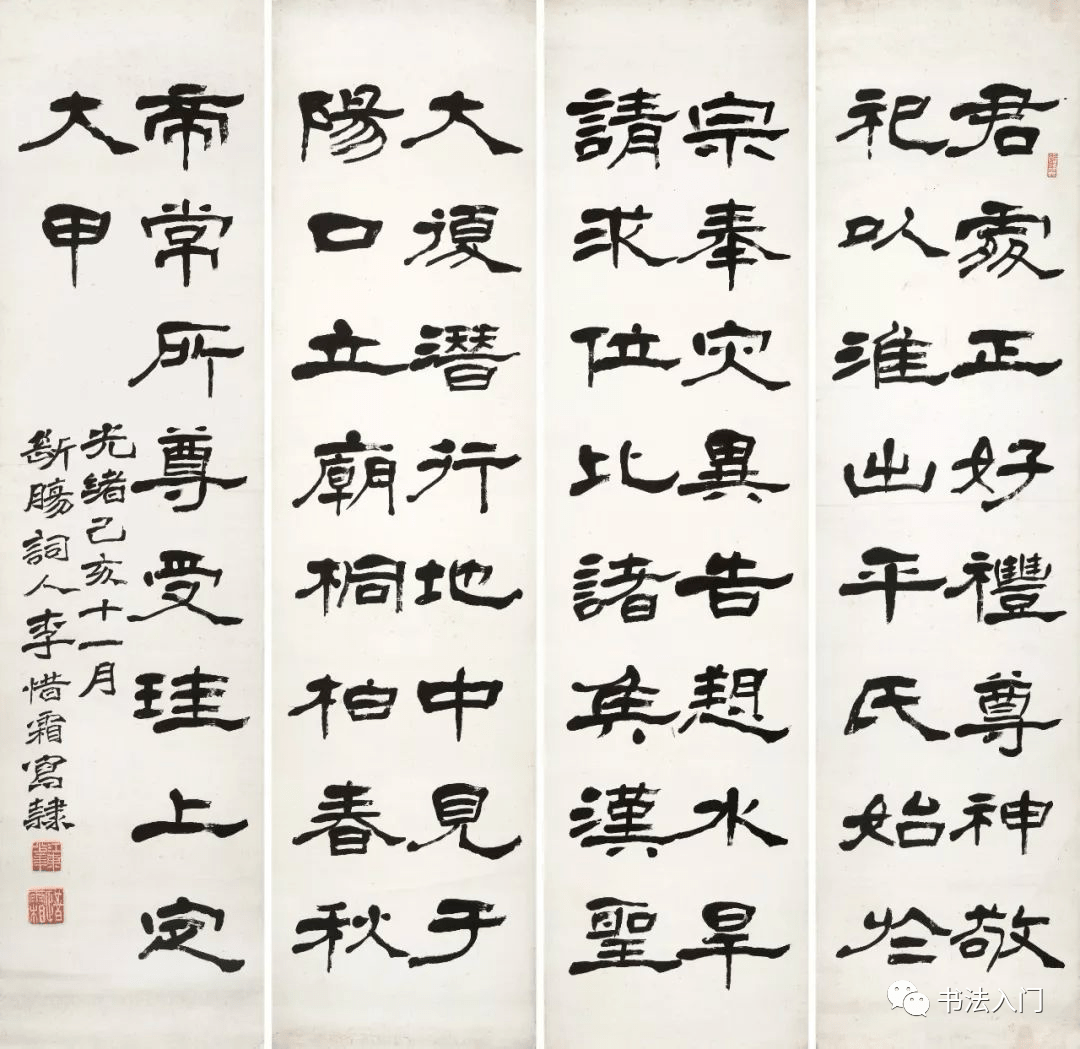 君處正好禮尊神敬
祀以淮出平氏始於
大復潛行地中見于
陽口立廟桐柏春秋
宗奉灾異告愬水旱
請求位比諸矦漢聖
帝常所尊受珪上定
大甲
光緒己亥十一月
斷腸詞人李惜霜寫隸
书法入门